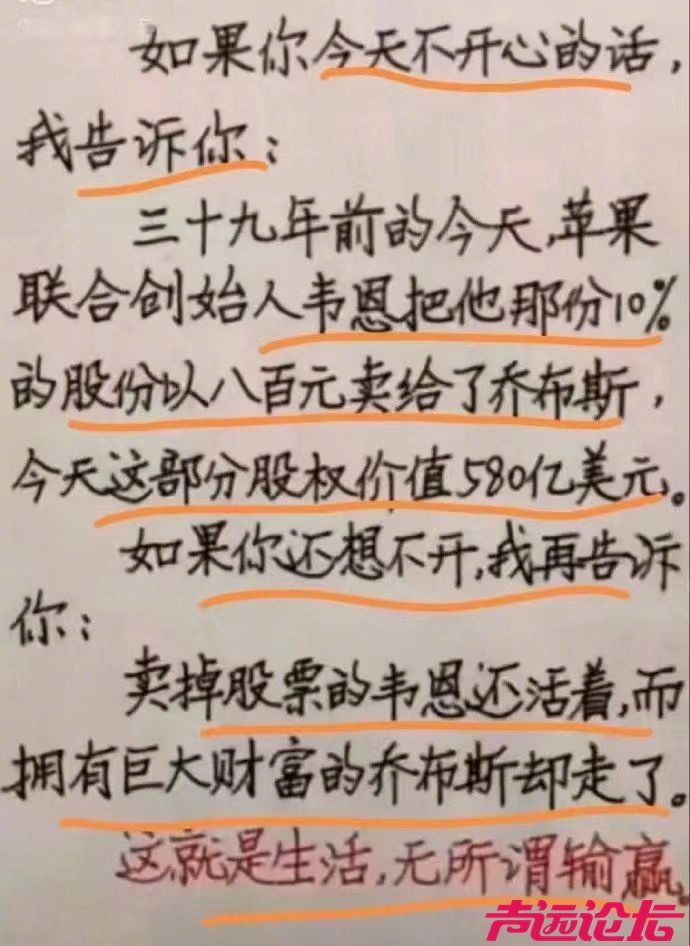 如果你今天不开心的话,
我告诉你:
三十九年前的今天,苹果
联合创始人韦恩把他那份10%
的股份以八百元卖给了乔布斯,
今天这部分股权价值580亿美元。
如果你还想不开,我再告诉
你:
卖掉股票的韦恩还活着,而
拥有巨大财富的乔布斯却走了。
这就是生活,无所谓输赢。
声远论坛